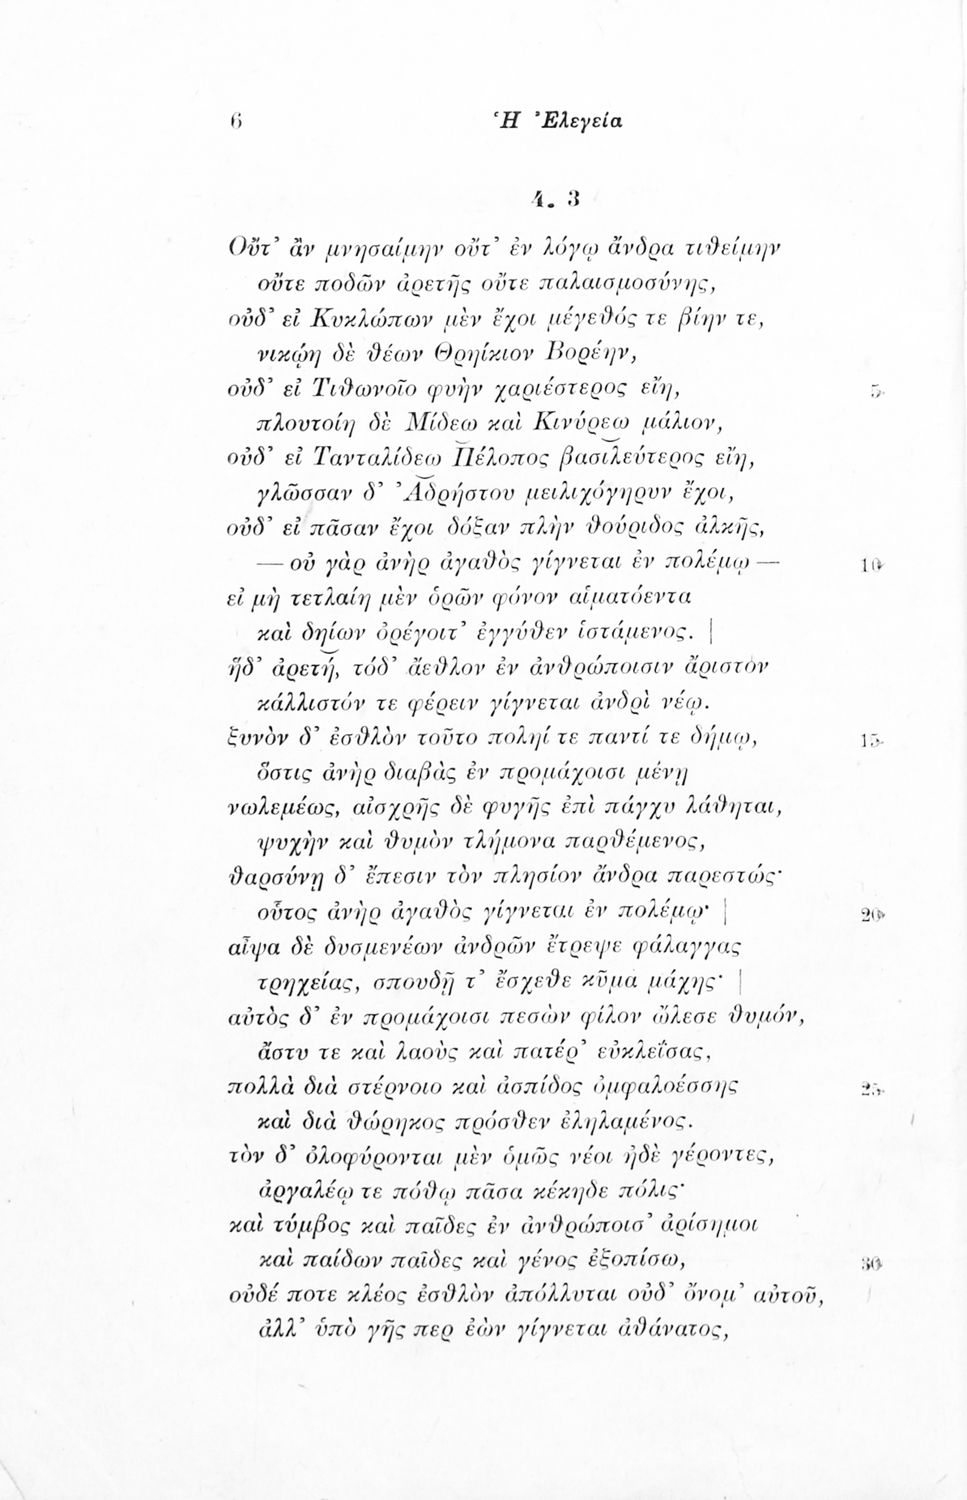 6 Ἡ Ἐλεγεία
4. 3
Οὔτ’ ἂν μνησαίμην οὔτ’ ἐν λόγῳ ἄνδρα τιθείμην
οὔτε ποδῶν ἀρετῆς οὔτε παλαισμοσύνης,
οὐδ’ εἰ Κυκλώπων μὲν ἔχοι μέγεθός τε βίην τε,
νικῴη δὲ θέων Θρηίκιον Βορέην,
οὐδ’ εἰ Τιθωνοῖο φυὴν χαριέστερος εἴη, 5
πλουτοίη δὲ Μίδεω καὶ Κινύρεω μάλιον,
οὐδ’ εἰ Τανταλίδεω Πέλοπος βασιλεύτερος εἴη,
γλῶσσαν δ’ Ἀδρήστου μειλιχόγηρυν ἔχοι,
οὐδ’ εἰ πᾶσαν ἔχοι δόξαν πλὴν θούριδος ἀλκῆς,
— οὐ γὰρ ἀνὴρ ἀγαθὸς γίγνεται ἐν πολέμῳ — 10
εἰ μὴ τετλαίη μὲν ὁρῶν φόνον αἱματόεντα
καὶ δηίων ὀρέγοιτ’ ἐγγύθεν ἱστάμενος. |
ἥδ’ ἀρετή, τόδ’ ἄεθλον ἐν ἀνθρώποισιν ἄριστον
κάλλιστόν τε φέρειν γίγνεται ἀνδρὶ νέῳ.
ξυνὸν δ’ ἐσθλὸν τοῦτο πολῆί τε παντί τε δήμῳ, 15
ὅστις ἀνὴρ διαβὰς ἐν προμάχοισι μένῃ
νωλεμέως, αἰσχρῆς δὲ φυγῆς ἐπὶ πάγχυ λάθηται,
ψυχὴν καὶ θυμὸν τλήμονα παρθέμενος,
θαρσύνῃ δ’ ἔπεσιν τὸν πλησίον ἄνδρα παρεστώς·
οὗτος ἀνὴρ ἀγαθὸς γίγνεται ἐν πολέμῳ· | 20
αἶψα δὲ δυσμενέων ἀνδρῶν ἔτρεψε φάλαγγας
τρηχείας, σπουδῇ τ’ ἔσχεθε κῦμα μάχης· |
αὐτὸς δ’ ἐν προμάχοισι πεσὼν φίλον ὤλεσε θυμόν,
ἄστυ τε καὶ λαοὺς καὶ πατέρ’ εὐκλεΐσας,
πολλὰ διὰ στέρνοιο καὶ ἀσπίδος ὀμφαλοέσσης 25
καὶ διὰ θώρηκος πρόσθεν ἐληλαμένος.
τὸν δ’ ὀλοφύρονται μὲν ὁμῶς νέοι ἠδὲ γέροντες,
ἀργαλέῳ τε πόθῳ πᾶσα κέκηδε πόλις·
καὶ τύμβος καὶ παῖδες ἐν ἀνθρώποισ’ ἀρίσημοι
καὶ παίδων παῖδες καὶ γένος ἐξοπίσω, 30
οὐδέ ποτε κλέος ἐσθλὸν ἀπόλλυται οὐδ’ ὄνομ’ αὐτοῦ,
ἀλλ’ ὑπὸ γῆς περ ἐὼν γίγνεται ἀθάνατος,